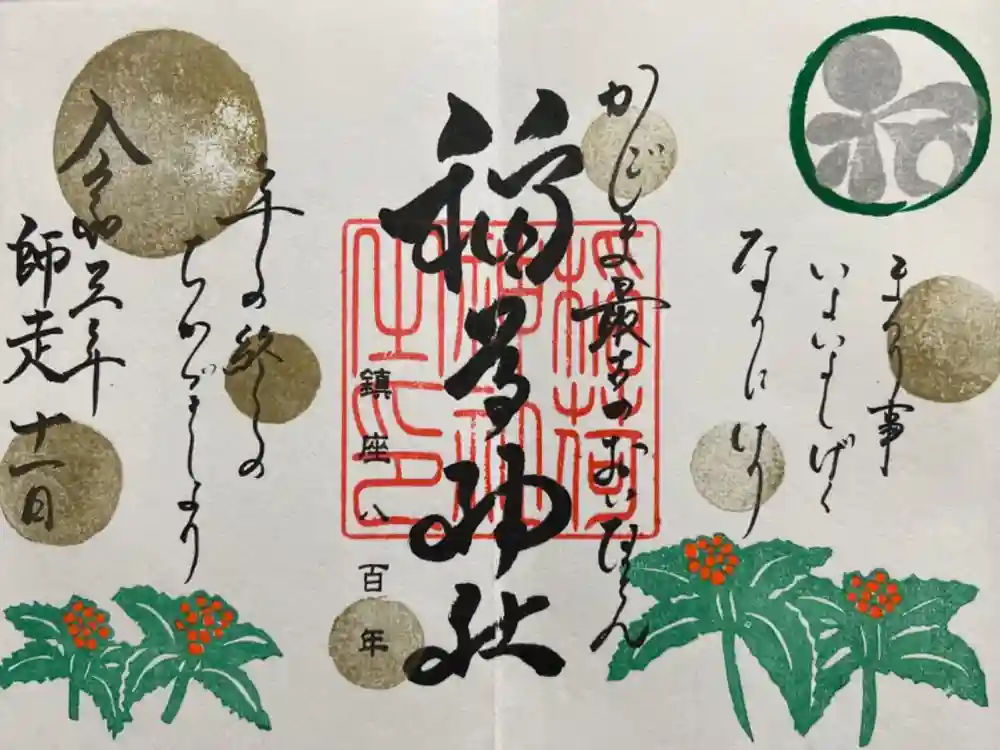 まつり事
いよいよしげく
なりにけり
かごしま最古のおいなりさん
稲荷神社
稲荷神社之印
鎮座八百年
年の終りの
ちかづきより
令和三年
師走十一日